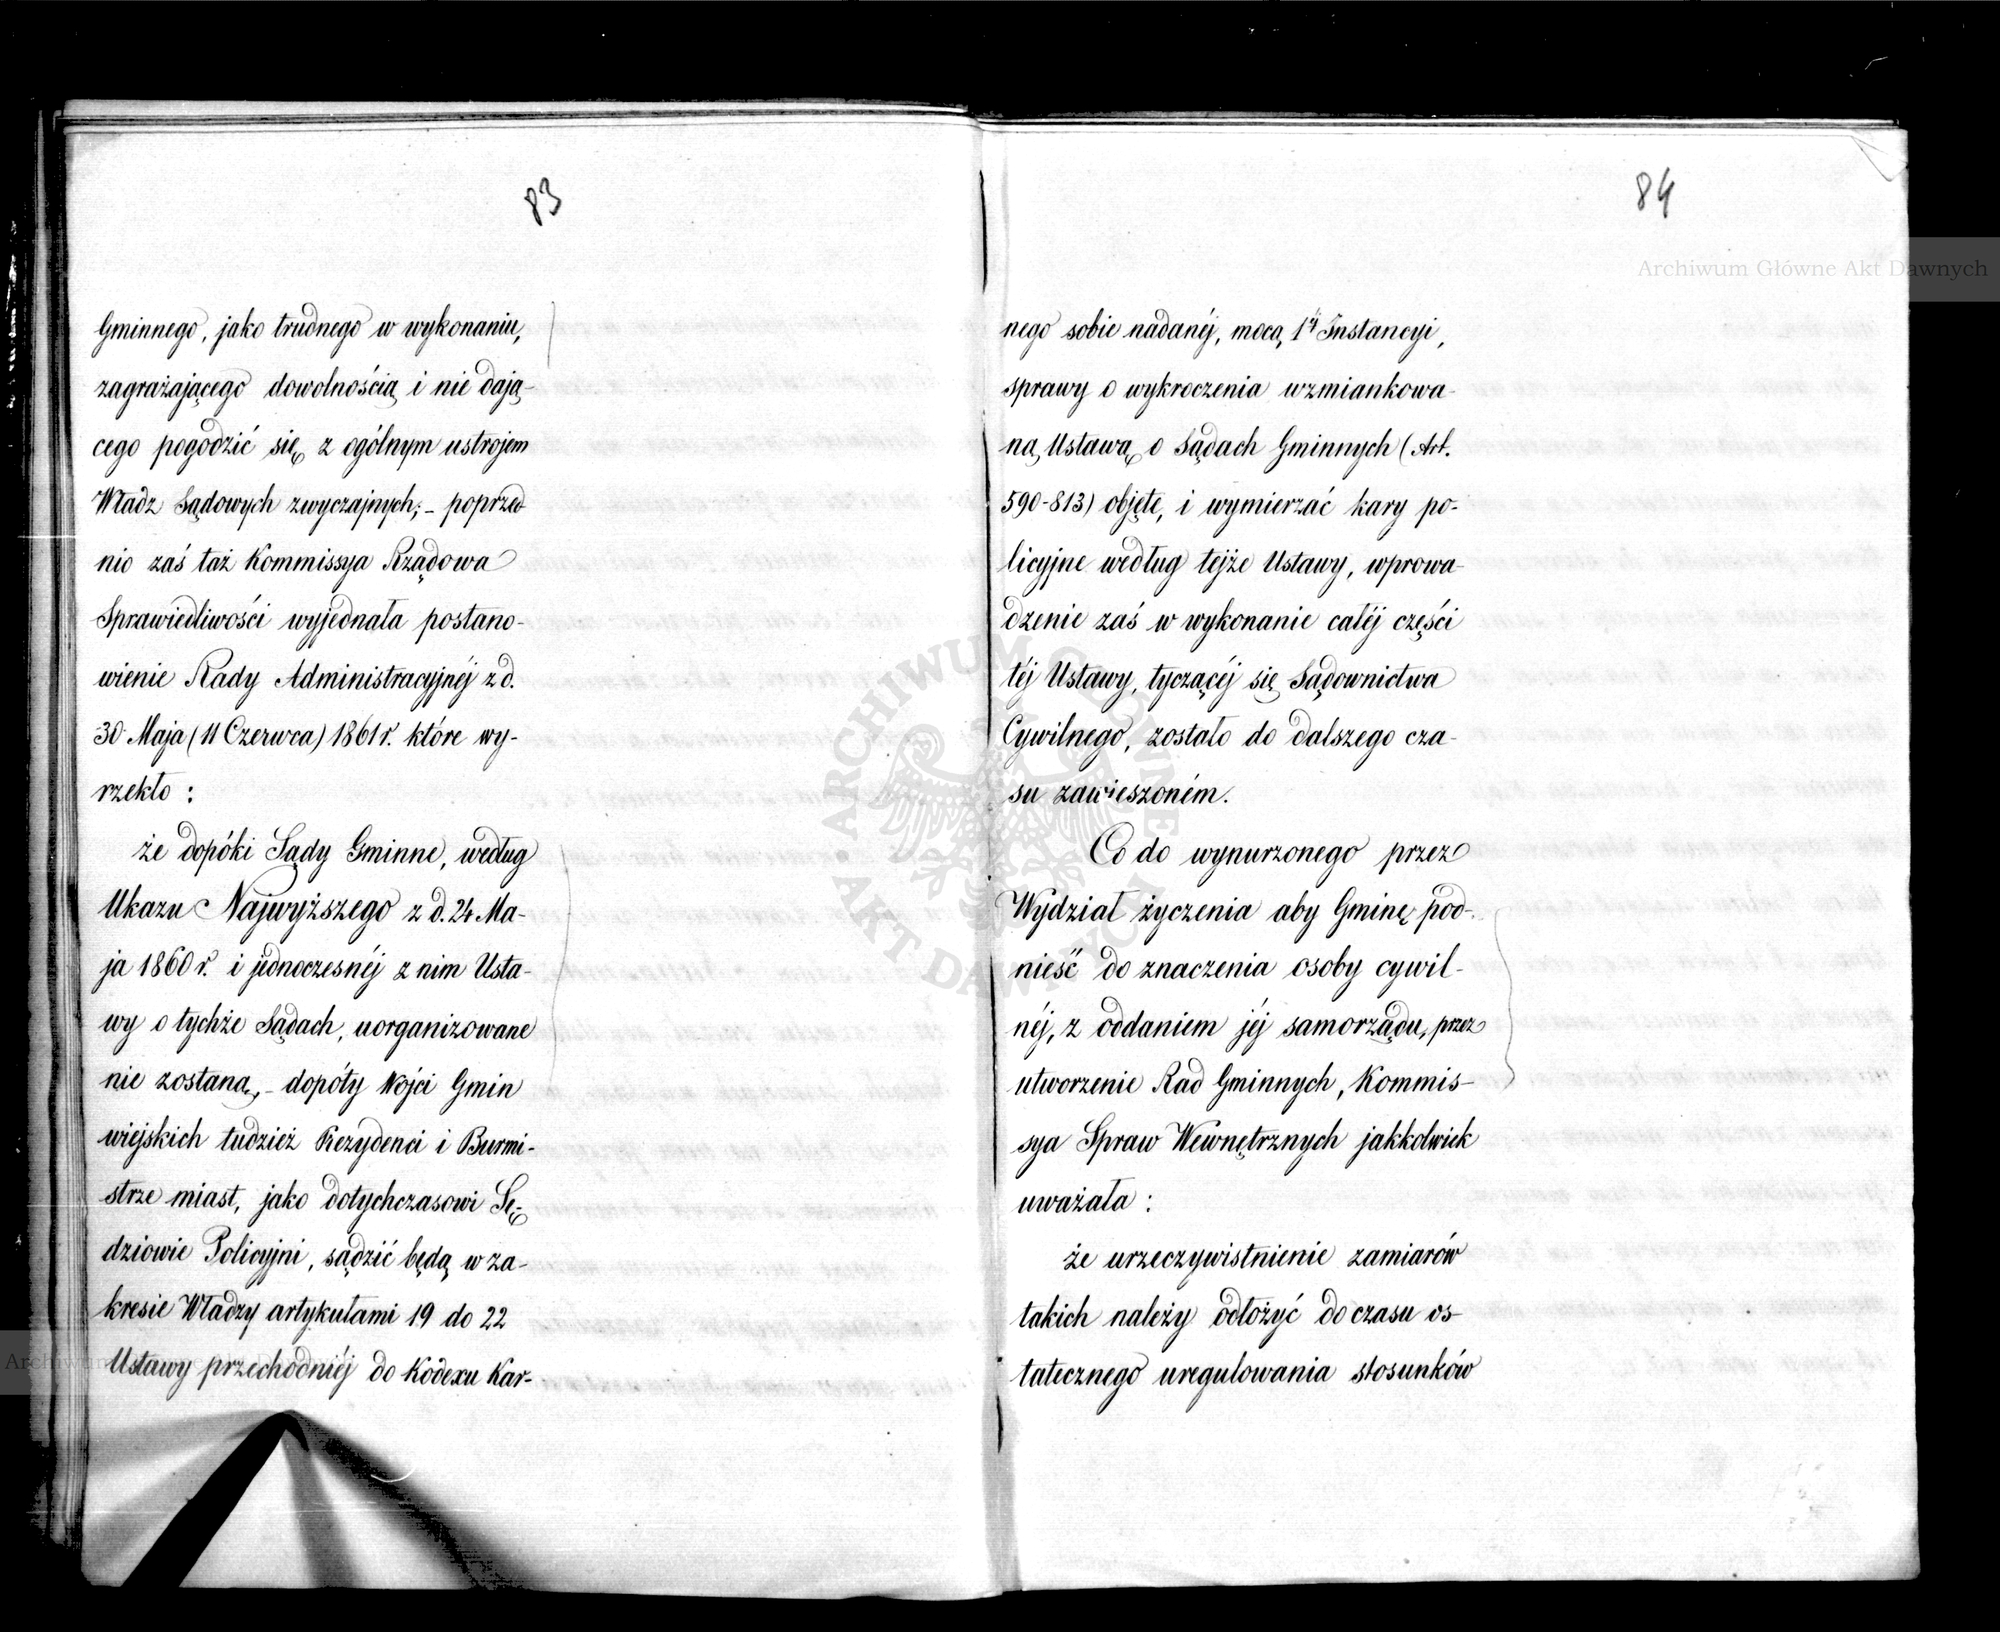 83
Gminnego, jako trudnego w wykonaniu,
zagrażającego dowolnością i nie dają-
cego pogodzić się z ogólnym ustrojem
Władz Sądowych zwyczajnych; – poprzed-
nio zaś taż Kommissya Rządowa
Sprawiedliwości wyjednała postano-
wienie Rady Administracyjnéj z d.
30 Maja (11 Czerwca) 1861 r. które wy-
rzekło :
że dopóki Sądy Gminne, według
Ukazu Najwyższego z d. 24 Ma-
ja 1860 r. i jednoczesnéj z nim Usta-
wy o tychże Sądach, uorganizowane
nie zostaną, – dopóty Wójci Gmin
wiejskich tudzież Prezydenci i Burmi-
strze miast, jako dotychczasowi Sę-
dziowie Policyjni, sądzić będą w za-
kresie Władzy artykułami 19 do 22
Ustawy przechodniéj do Kodexu Kar-
84
nego sobie nadanéj, mocą 1éj Instancyi,
sprawy o wykroczenia wzmiankowa-
ną Ustawą o Sądach Gminnych (Art.
590-813) objęte, i wymierzać kary po-
licyjne według tejże Ustawy, wprowa-
dzenie zaś w wykonanie całéj części
téj Ustawy, tyczącéj się Sądownictwa
Cywilnego, zostało do dalszego cza-
su zawieszoném.
Co do wynurzonego przez
Wydział życzenia aby Gminę pod-
nieść do znaczenia osoby cywil-
néj, z oddaniem jéj samorządu, przez
utworzenie Rad Gminnych, Kommis-
sya Spraw Wewnętrznych jakkolwiek
uważała :
że urzeczywistnienie zamiarów
takich należy odłożyć do czasu os-
tatecznego uregulowania stosunków
Archiwum Główne Akt Dawnych
ARCHIWUM GŁÓWNE AKT DAWNYCH